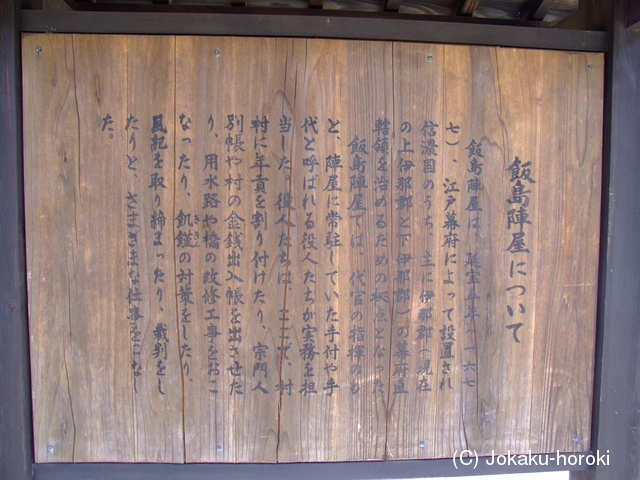 飯島陣屋について
飯島陣屋は、延宝五年(一六七
七)、江戸幕府によって設置され
信濃国のうち、主に伊那郡(現在
の上伊那郡と下伊那郡)の幕府直
轄領を治めるための拠点となった
飯島陣屋では、代官の指揮のも
と、陣屋に常駐していた手付や手
代と呼ばれる役人たちが実務を担
当した。役人たちは、ここで、村
村に年貢を割り付けたり、宗門人
別帳や村の金銭出入帳を出させた
り、用水路や橋の改修工事をおこ
なったり、飢饉の対策をしたり、
ききん
風紀を取り締まったり、裁判をし
たりと、さまざまな仕事をこなし
た。
(C) Jokaku-horoki